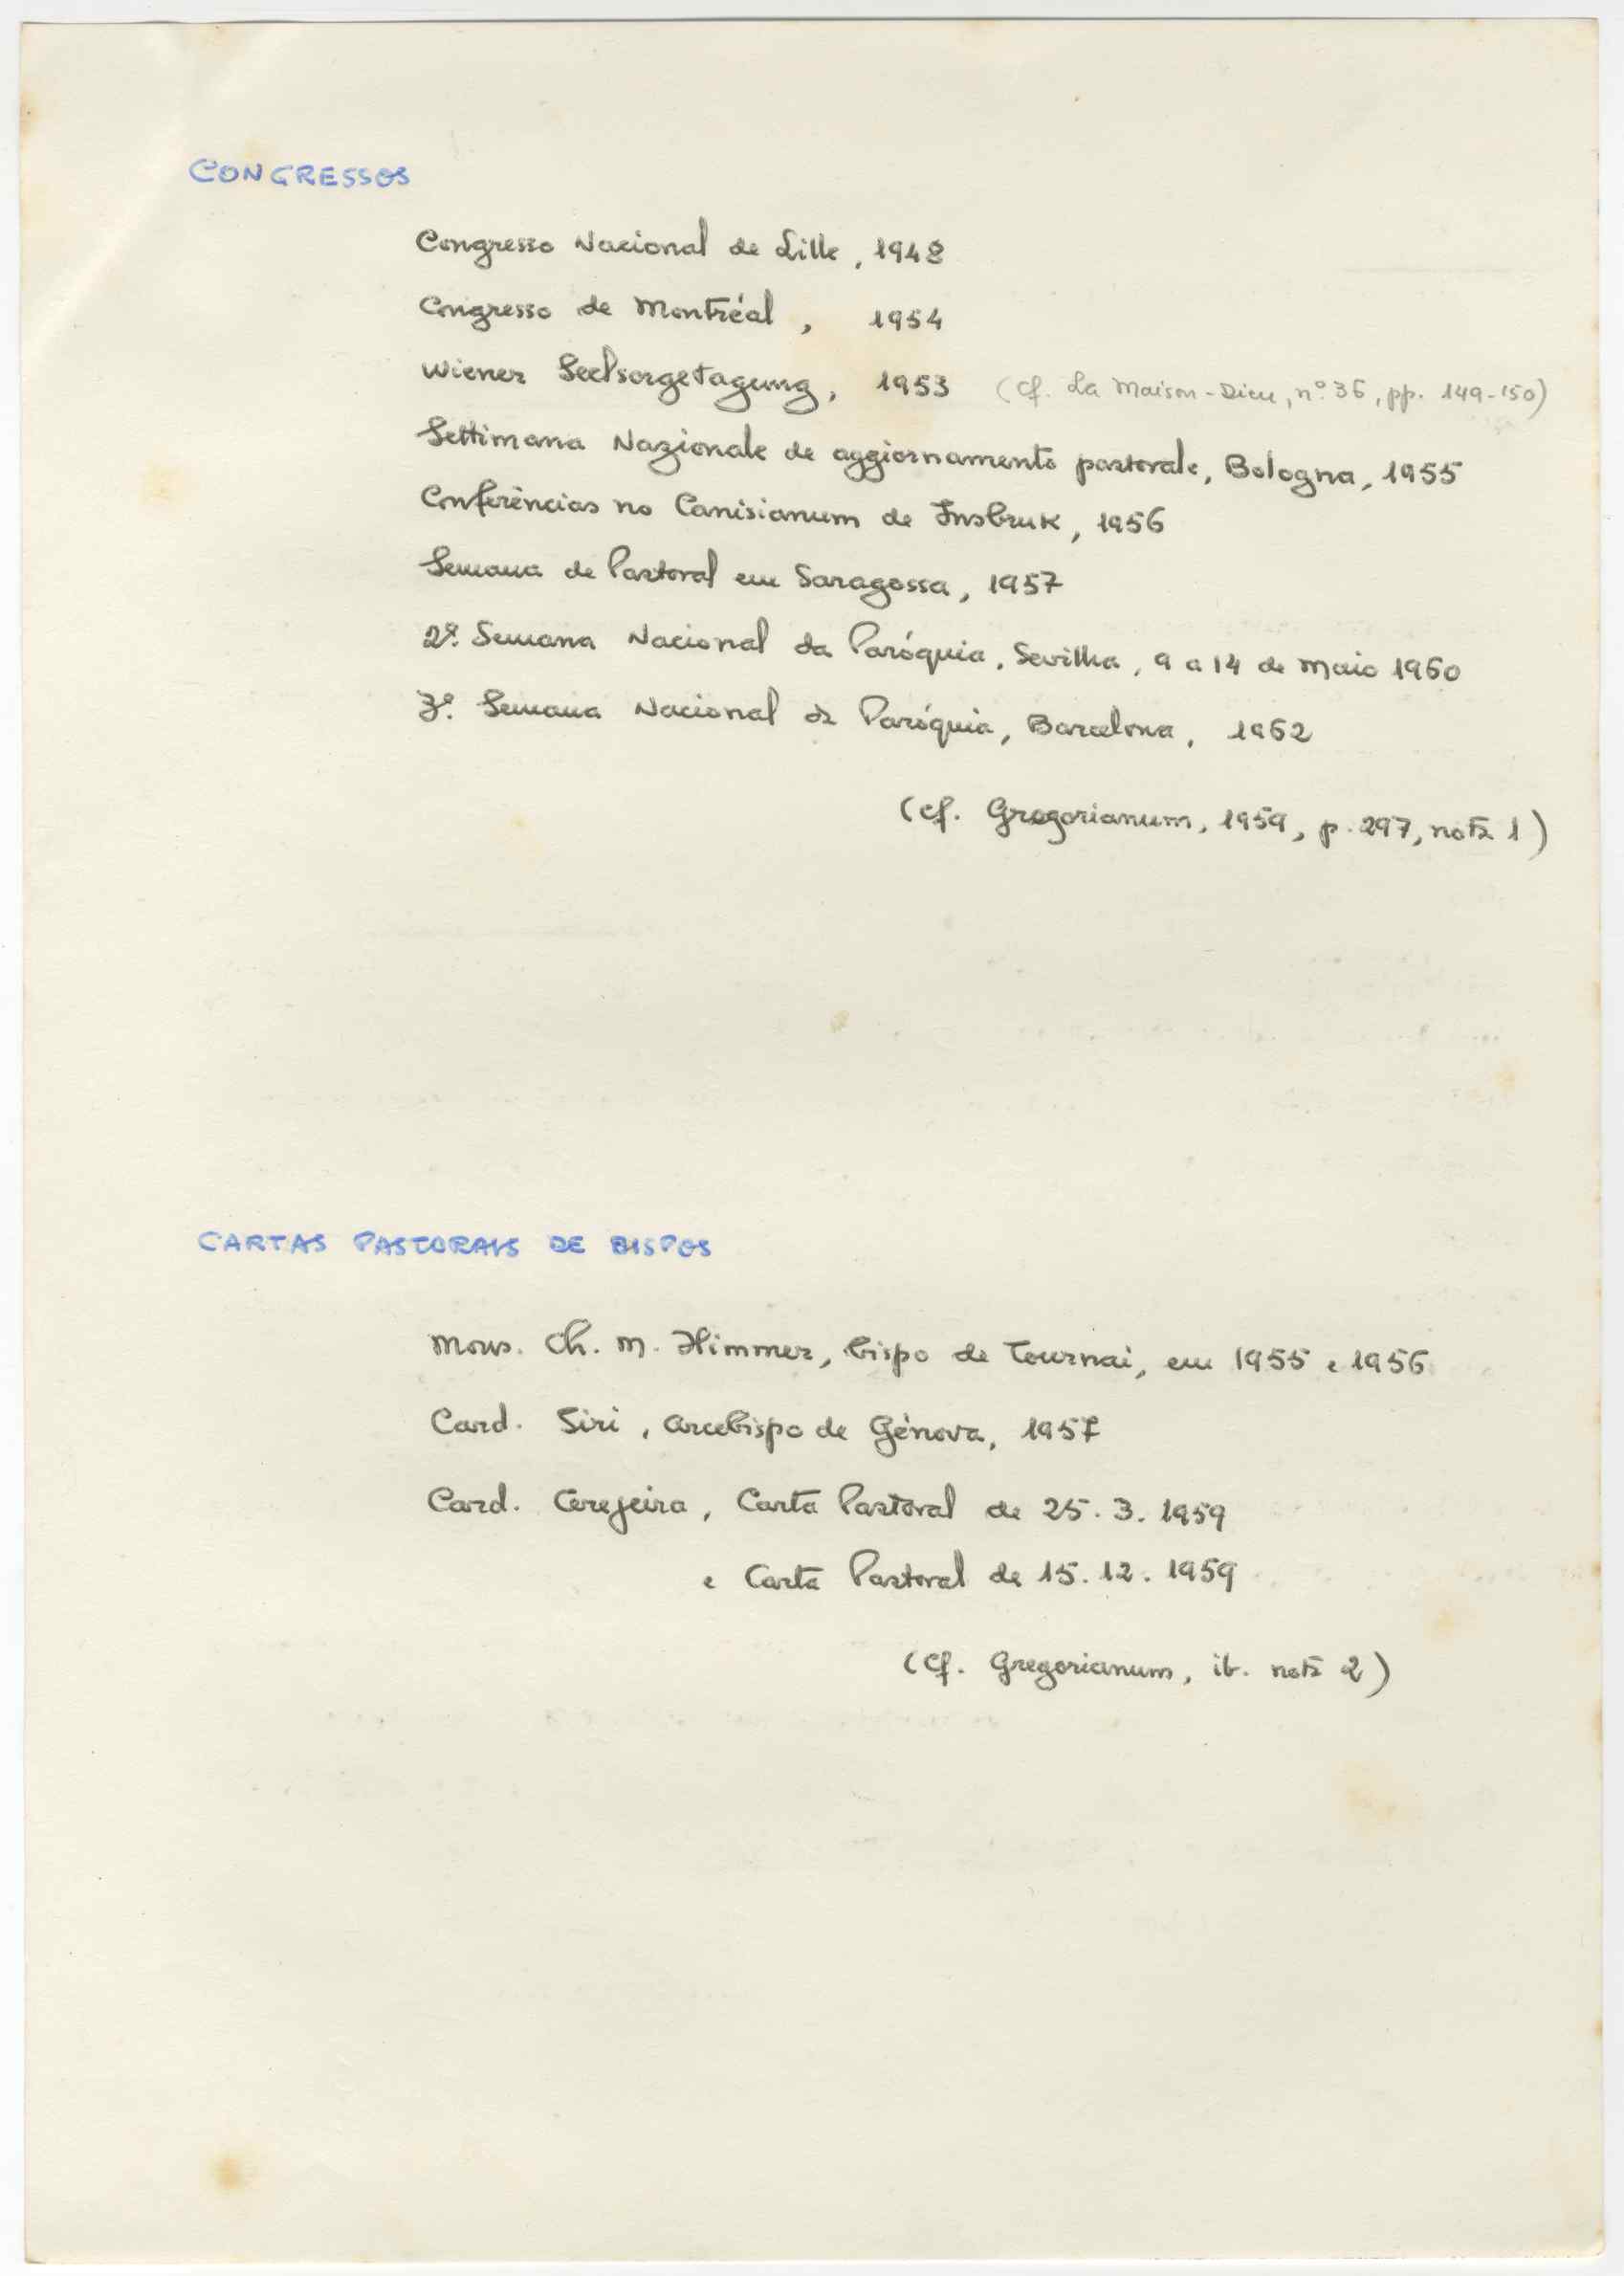 CONGRESSOS
Congresso Nacional de Lille, 1948
Congresso de Montréal, 1954
Wiener Seelsorgetagung, 1953 (cf. La Maison-Dieu, n.º 36, pp. 149-150)
Settimana Nazionale de aggiornamento pastorale, Bologna, 1955
Conferências no Canisianum de Insbruk, 1956
Semana de Pastoral em Saragossa, 1957
2ª. Semana Nacional da Paróquia, Sevilha, 9 a 14 de Maio 1960
3ª. Semana Nacional da Paróquia, Barcelona, 1962
(cf. Gregorianum, 1959, p. 297, nota 1)
CARTAS PASTORAIS DE BISPOS
Mons. Ch. M. Himmer, bispo de Tournai, em 1955 e 1956
Card. Siri, arcebispo de Génova, 1957
Card. Cerejeira, Carta Pastoral de 25.3.1959
e Carta Pastoral de 15.12.1959
(cf. Gregorianum, ib. nota 2)